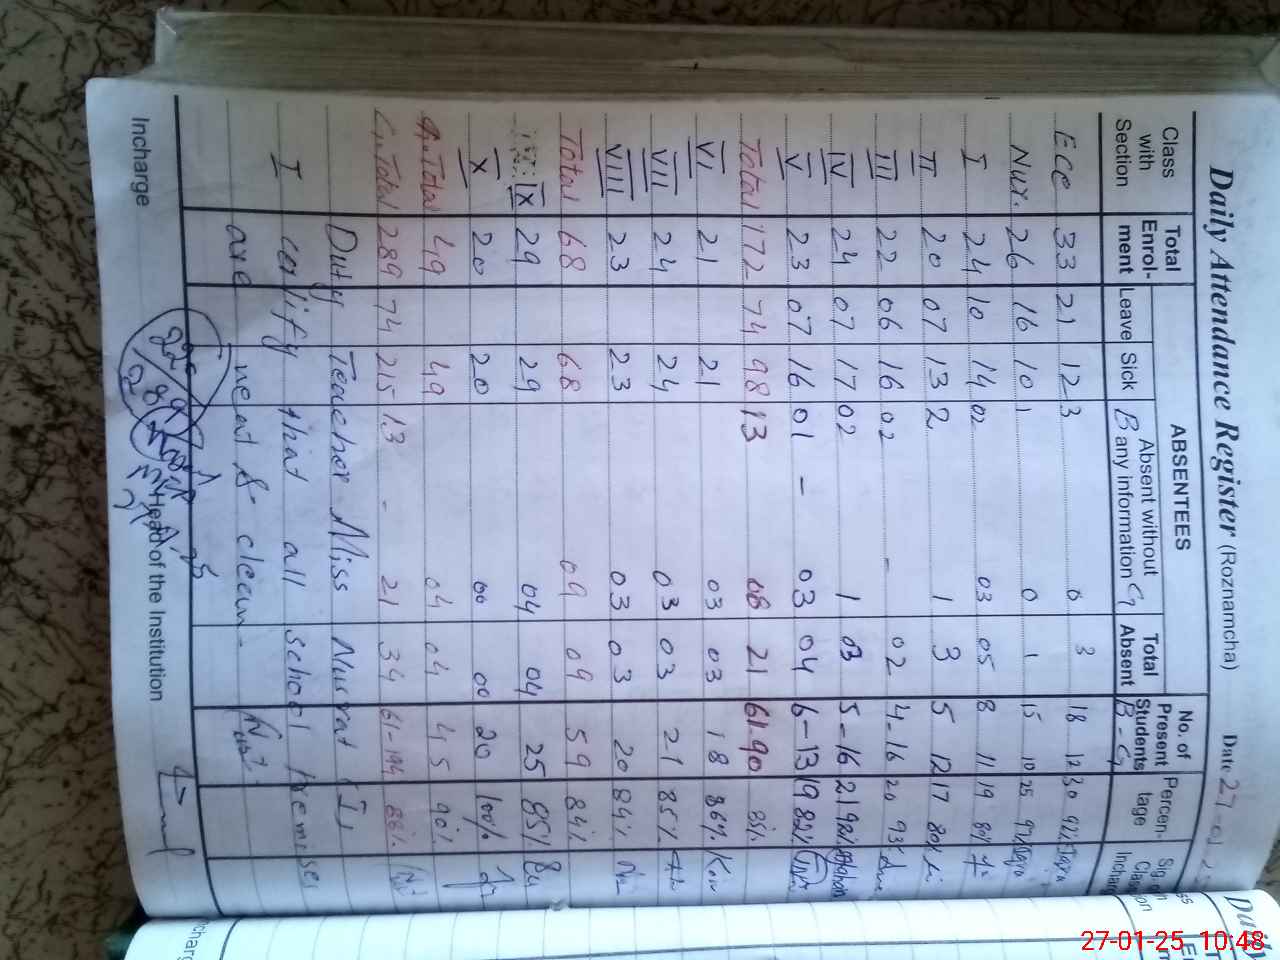 Daily Attendance Register (Roznamcha) Date 27-01-
Class with Section Total Enrol-ment ABSENTEES Leave Sick Absent without any information B G Total Absent No. of Present Students B-G Percen-tage Sig. of Class Incharge
Ece 33 21 12 3 0 3 18 12 30 92%
Nur. 26 16 10 1 0 1 15 10 25
I 24 10 14 02 03 05 8 11 19 80%
II 20 07 13 2 1 3 5 12 17
III 22 06 16 02 - 02 4-16 20 93%
IV 24 07 17 02 1 03 5-16 21 92%
V 23 07 16 01 - 03 04 6-13 19 82%
Total 172 74 98 13 08 21 61-90 85%
VI 21 21 03 03 18 86%
VII 24 24 03 03 21 85%
VIII 23 23 03 03 20 84%
Total 68 68 09 09 59 84%
IX 29 29 04 04 25 85%
X 20 20 00 00 20 100%
G.Total 49 49 04 04 45 90%
G.Total 289 74 215 13 - 21 34 61-194 88%
Duty Teacher Miss Nusrat
I certify that all school premises
are neat & clean.
Incharge Head of the Institution
27-01-25 10:48